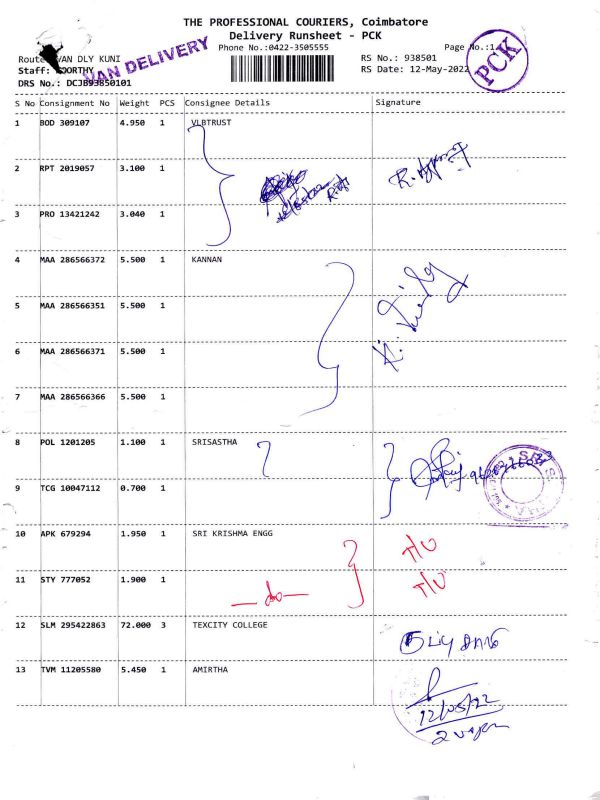 THE PROFESSIONAL COURIERS, Coimbatore
Delivery Runsheet - PCK
Phone No.:0422-3505555
Page No.:1
PCK
Route: VAN DLY KUNI
VAN DELIVERY
RS No.: 938501
Staff: OORTHY
RS Date: 12-May-2022
DRS No.: DCJB93850101
S No Consignment No Weight PCS Consignee Details Signature
1 BOD 309107 4.950 1 VLBTRUST
2 RPT 2019057 3.100 1
3 PRO 13421242 3.040 1
4 MAA 286566372 5.500 1 KANNAN
5 MAA 286566351 5.500 1
6 MAA 286566371 5.500 1
7 MAA 286566366 5.500 1
8 POL 1201205 1.100 1 SRISASTHA
9 TCG 10047112 0.700 1
10 APK 679294 1.950 1 SRI KRISHMA ENGG
T/U
11 STY 777052 1.900 1
— do — T/U
12 SLM 295422863 72.000 3 TEXCITY COLLEGE
13 TVM 11205580 5.450 1 AMIRTHA
12/05/22